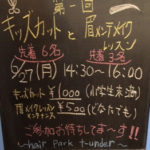 第一回
キッズカットと眉メンテメイク
レッスン
先着6名
先着3名
6/27(月) 14:30~16:00
キッズカット ¥1000 (小学生未満)
眉メイクレッスン
メンテナンス ¥500 (どなたでも)
ご参加お待ちしてまーす!!
~hair Park t-under~